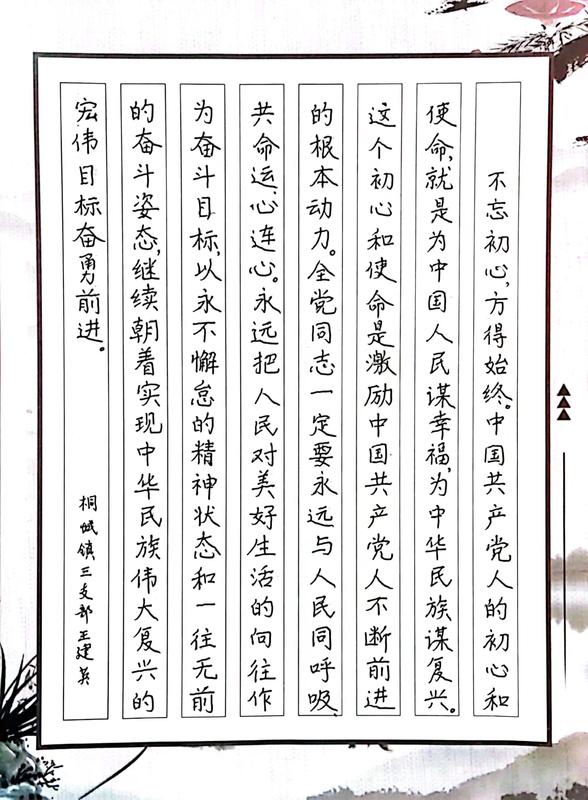 不忘初心，方得始终。中国共产党人的初心和
使命，就是为中国人民谋幸福，为中华民族谋复兴。
这个初心和使命是激励中国共产党人不断前进
的根本动力。全党同志一定要永远与人民同呼吸、
共命运、心连心。永远把人民对美好生活的向往作
为奋斗目标，以永不懈怠的精神状态和一往无前
的奋斗姿态，继续朝着实现中华民族伟大复兴的
宏伟目标奋勇前进。
桐城镇三支部王建英